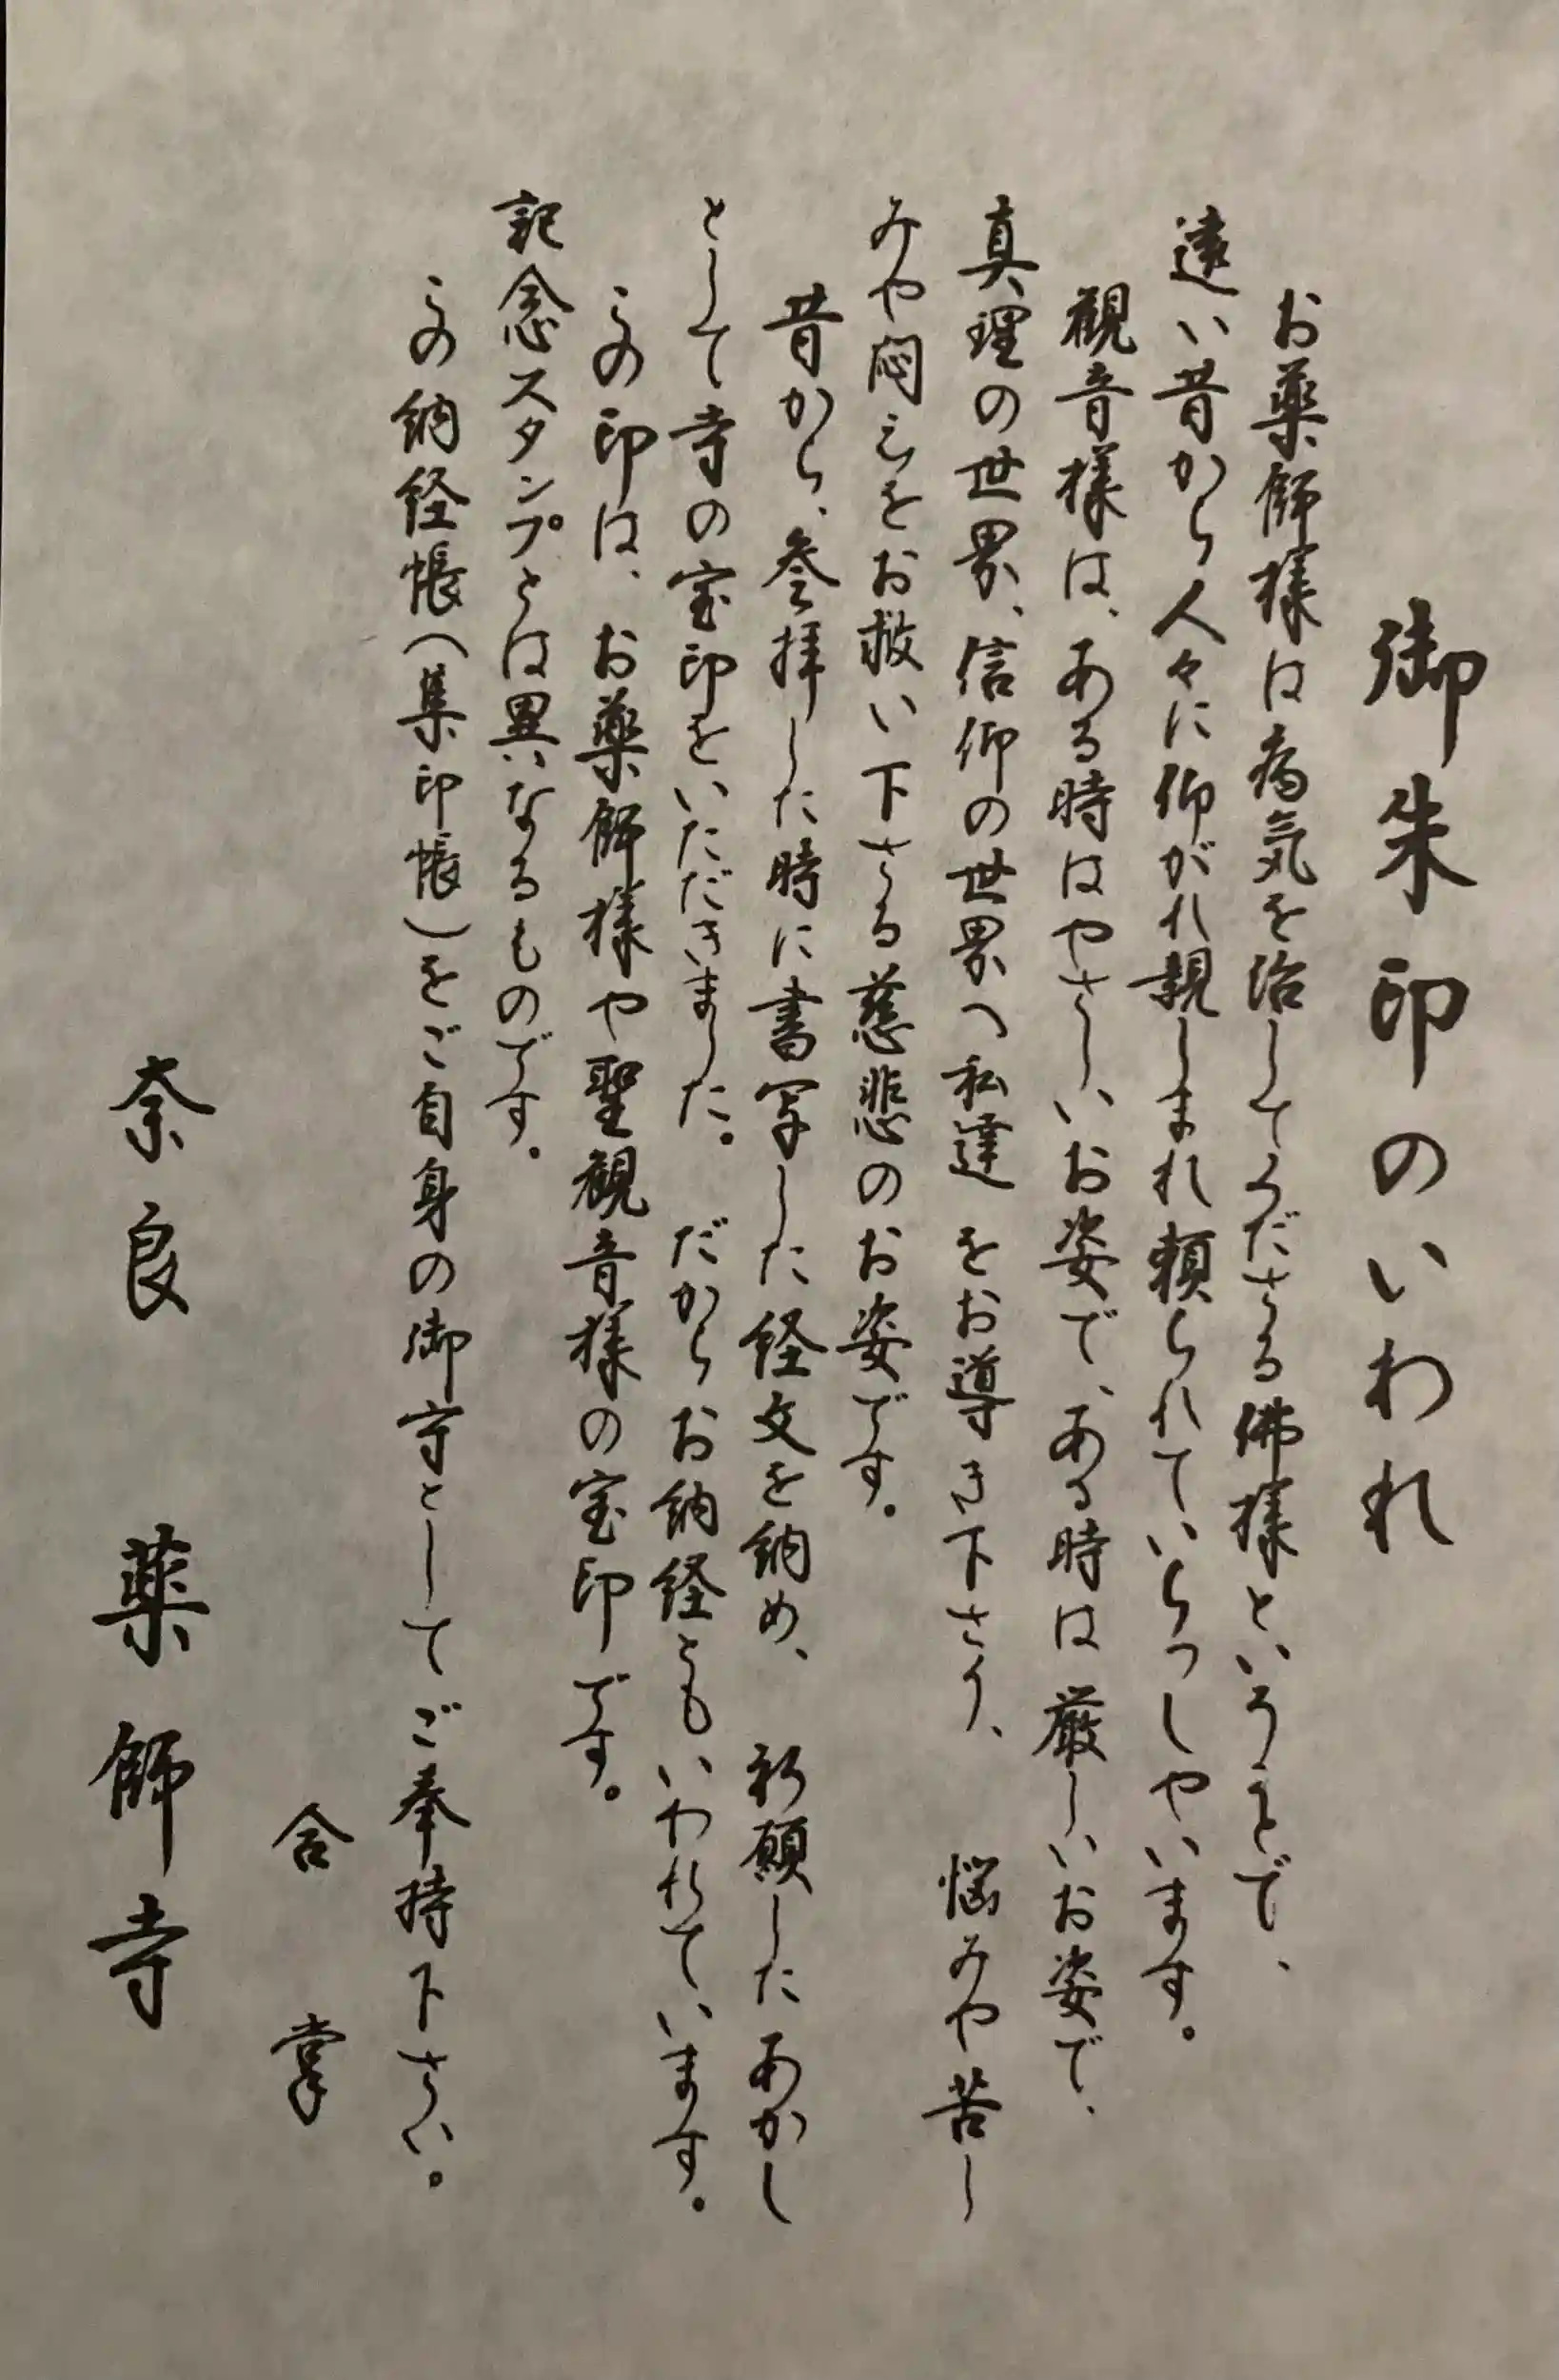 御朱印のいわれ
お薬師様は病気を治してくださる佛様ということで、
遠い昔から人々に仰がれ親しまれ頼られていらっしやいます。
観音様は、ある時はやさしいお姿で、ある時は厳しいお姿で、
真理の世界、信仰の世界へ私達をお導き下さり、悩みや苦し
みや悶えをお救い下さる慈悲のお姿です。
昔から、参拝した時に書写した経文を納め、祈願したあかし
として寺の宝印をいただきました。だからお納経ともいわれています。
この印は、お薬師様や聖観音様の宝印です。
記念スタンプとは異いなるものです。
この納経帳(集印帳)をご自身の御守としてご奉持下さい。
合掌
奈良 薬師寺